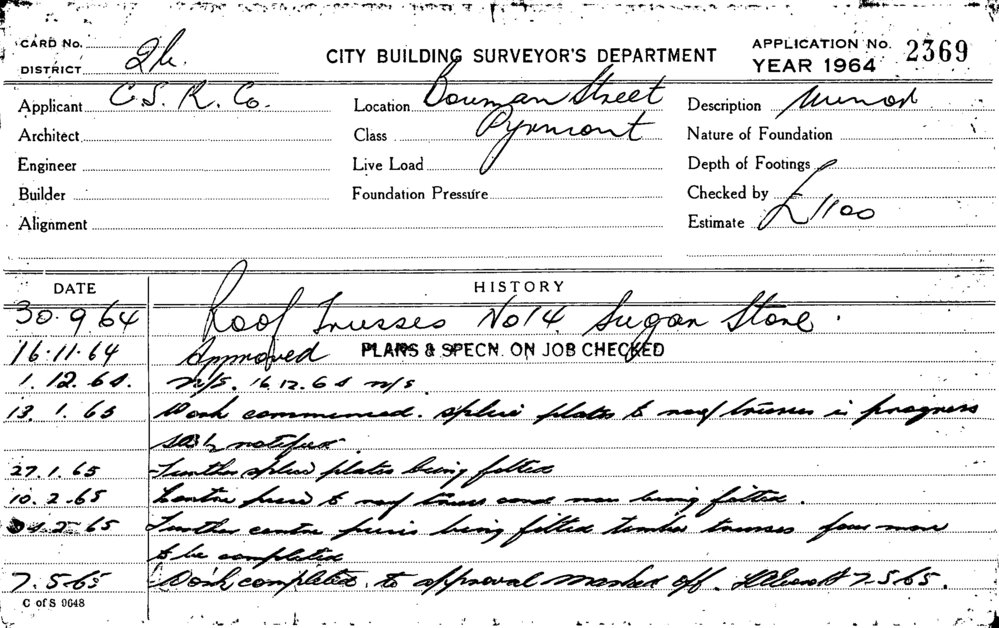 CARD No.
DISTRICT
CITY BUILDING SURVEYOR'S DEPARTMENT
APPLICATION No. 2369
YEAR 1964
Applicant C.S.R. Co.
Location Bowman Street
Description Minor
Architect
Class Pyrmont
Nature of Foundation
Engineer
Live Load
Depth of Footings
Builder
Foundation Pressure
Checked by
Alignment
Estimate £1100
DATE HISTORY
30.9.64 Roof Trusses No 14 Sugar Store.
16.11.64 Approved PLANS & SPECN. ON JOB CHECKED
1.12.64. n/s. 16.12.64 n/s.
13.1.65 Work commenced. splice plates to roof trusses in progress
notified.
27.1.65 Further splice plates being fitted
10.2.65 Centre to roof now being fitted.
2.65 Further centre being fitted timber trusses four more
to be completed
7.5.65 Work completed. to approval marked off. 7.5.65.
C of S 9648